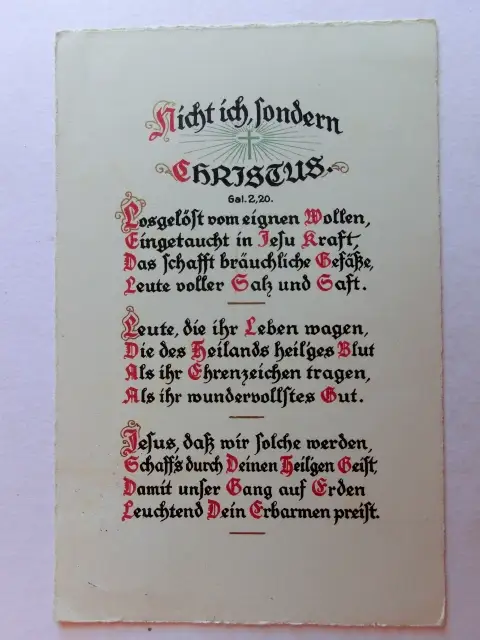 Nicht ich, ſondern
CHRISTUS.
Gal. 2, 20.
Losgelöſt vom eignen Wollen,
Eingetaucht in Jeſu Kraft,
Das ſchafft bräuchliche Gefäße,
Leute voller Salz und Saft.
Leute, die ihr Leben wagen,
Die des Heilands heil'ges Blut
Als ihr Ehrenzeichen tragen,
Als ihr wundervollſtes Gut.
Jeſus, daß wir ſolche werden,
Schaff's durch Deinen Heil'gen Geiſt,
Damit unſer Gang auf Erden
Leuchtend Dein Erbarmen preiſt.